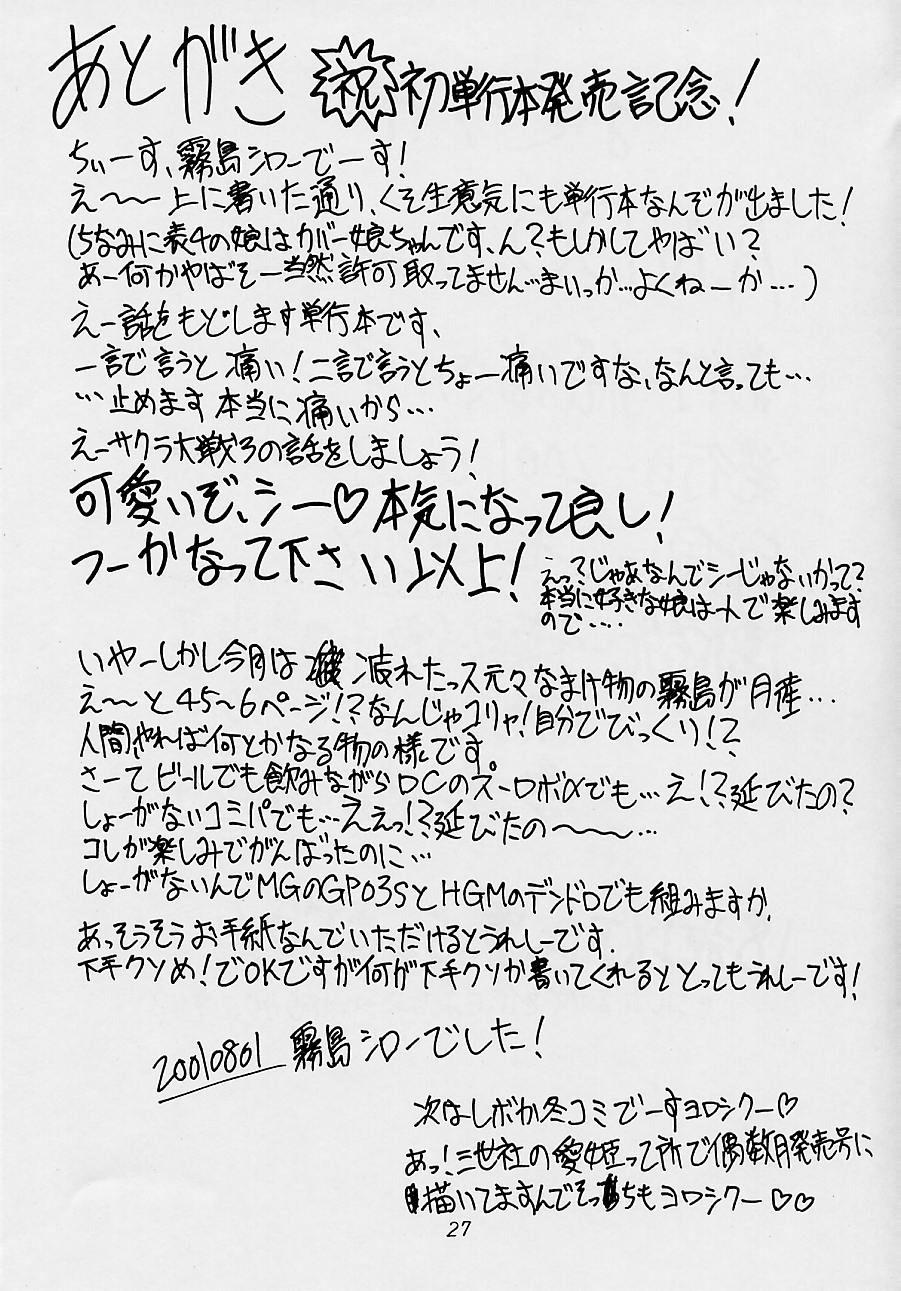 あとがき 祝 初単行本発売記念!
ちぃーす、霧島シローでーす!
え〜〜上に書いた通り、くそ生意気にも単行本なんぞが出ました!
(ちなみに表4の娘はカバー娘ちゃんです、ん?もしかしてやばい?
あー何かやばそー当然許可取ってません…まいっか…よくねーか…)
えー話をもどします単行本です、
一言で言うと痛い!二言で言うとちょー痛いですな、なんと言っても…
…止めます本当に痛いから…
えーサクラ大戦3の話をしましょう!
可愛いぞ、シー♡本気になって良し!
つーかなって下さい以上!
えっ?じゃあなんでシーじゃないかって?
本当に好きな娘は一人で楽しみます
ので‥‥
いやーしかし今月は 疲れたっス元々なまけ物の霧島が月産…
え〜と45〜6ページ!?なんじゃコリャ!自分でびっくり!?
人間やれば何とかなる物の様です
さーてビールでも飲みながらDCのスーロボαでも…え!?延びたの?
しょーがないコミパでも…ええっ!?延びたの〜〜〜…
コレが楽しみでがんばったのに…
しょーがないんでMGのGP03SとHGMのデンドロでも組みますか、
あっそうそうお手紙なんていただけるとうれしーです.
下手クソめ!でOKですが何が下手クソか書いてくれるととってもうれしーです!
20010801 霧島シローでした!
次はレボか冬コミでーすヨロシクー♡
あっ!三世社の愛姫って所で偶数月発売号に
描いてますんでそっちもヨロシクー♡♡
27